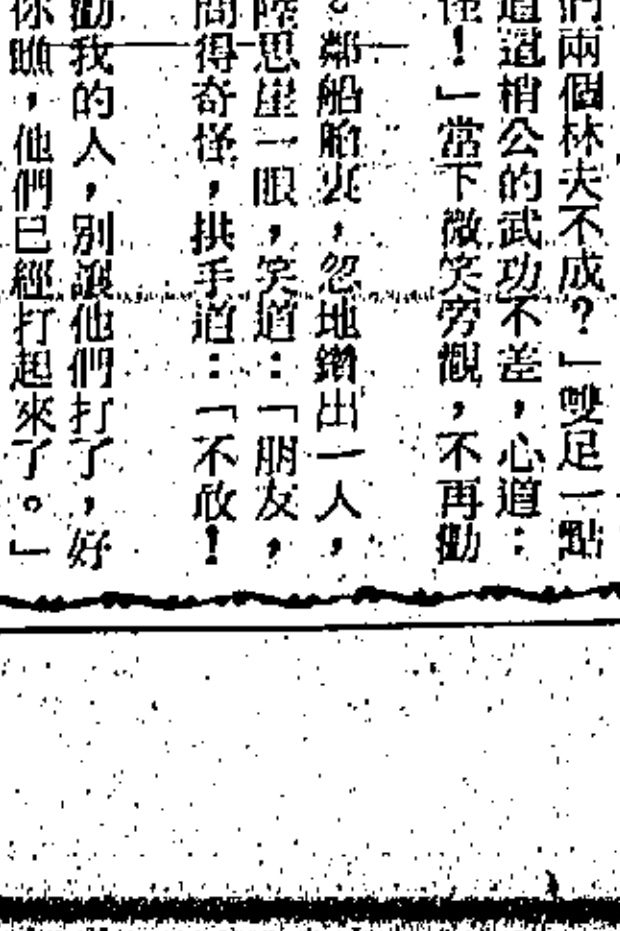 們兩個林夫不成？」雙足一點
道這梢公的武功不差，心道：
怪！」當下微笑旁觀，不再勸
。鄰船艙裏，忽地鑽出一人，
陸思崖一眼，笑道：「朋友，
問得奇怪，拱手道：「不敢！
勸我的人，別讓他們打了，好
你瞧，他們已經打起來了。」